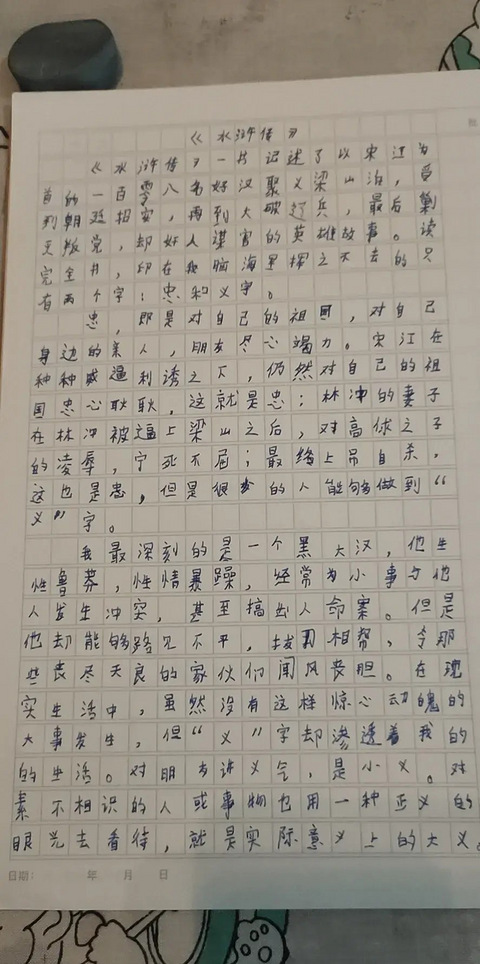 《水浒传》
《水浒传》一书记述了以宋江为
首的一百零八名好汉聚义梁山泊，受
到朝廷招安，再到大破辽兵，最后剿
灭叛党，却好人谋害的英雄故事。读
完全书，印在我脑海里挥之不去的只
有两个字：忠和义字。
忠，即是对自己的祖国，对自己
身边的亲人，朋友尽心竭力。宋江在
种种威逼利诱之下，仍然对自己的祖
国忠心耿耿，这就是忠；林冲的妻子
在林冲被逼上梁山之后，对高俅之子
的凌辱，宁死不屈；最终上吊自杀，
这也是忠，但是很多的人能够做到“
义”字。
我最深刻的是一个黑大汉，他生
性鲁莽，性情暴躁，经常为小事与他
人发生冲突，甚至搞出人命案。但是
他却能够路见不平，拔刀相帮，令那
些丧尽天良的家伙们闻风丧胆。在现
实生活中，虽然没有这样惊心动魄的
大事发生，但“义”字却渗透着我的
的生活。对朋友讲义气，是小义。对
素不相识的人或事物也用一种正义的
眼光去看待，就是实际意义上的大义。
日期： 年 月 日